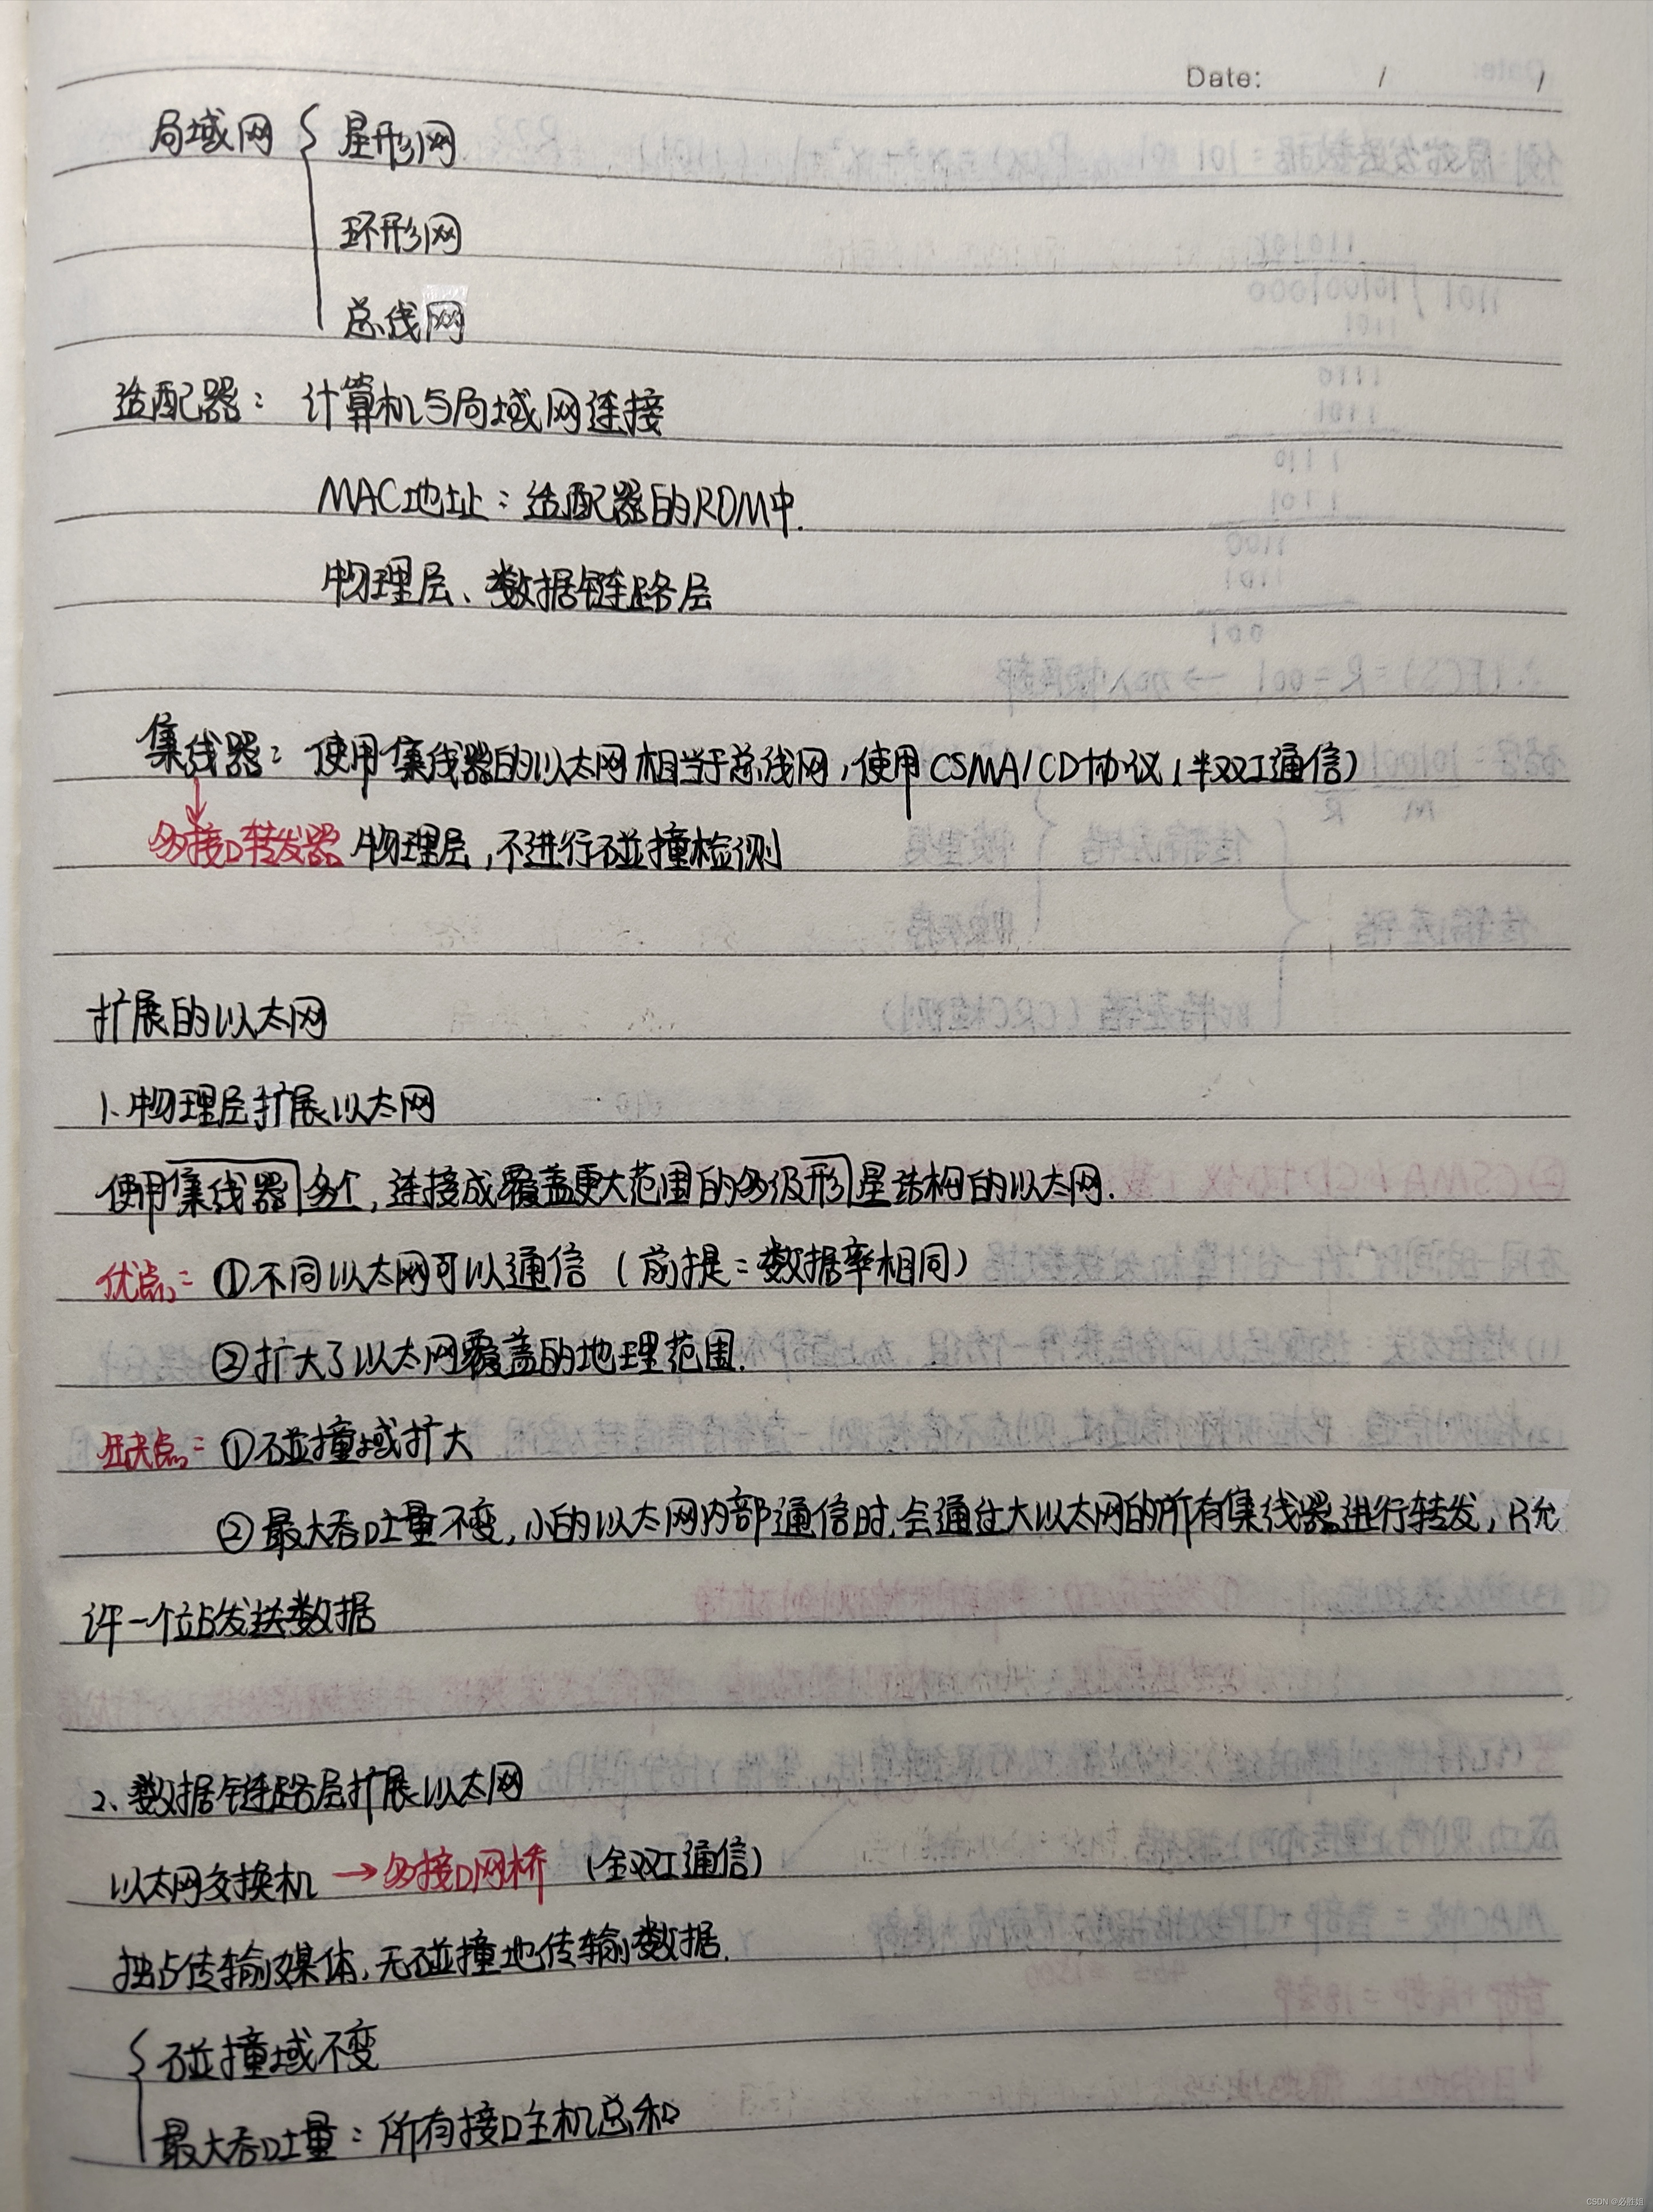 Date: / /
局域网 { 星形网
环形网
总线网
适配器：计算机与局域网连接
MAC地址：适配器的ROM中.
物理层、数据链路层
集线器：使用集线器的以太网相当于总线网，使用CSMA/CD协议（半双工通信）
↓
多接口转发器 物理层，不进行碰撞检测
扩展的以太网
1.物理层扩展以太网
使用集线器多个，连接成覆盖更大范围的多级形星结构的以太网.
优点：①不同以太网可以通信（前提：数据率相同）
②扩大了以太网覆盖的地理范围.
缺点：①碰撞域扩大
②最大吞吐量不变，小的以太网内部通信时，会通往大以太网的所有集线器进行转发，只允
许一个站发送数据
2、数据链路层扩展以太网
以太网交换机 → 多接口网桥 （全双工通信）
独占传输媒体，无碰撞地传输数据.
{ 碰撞域不变
最大吞吐量：所有接口主机总和
CSDN @必胜姐